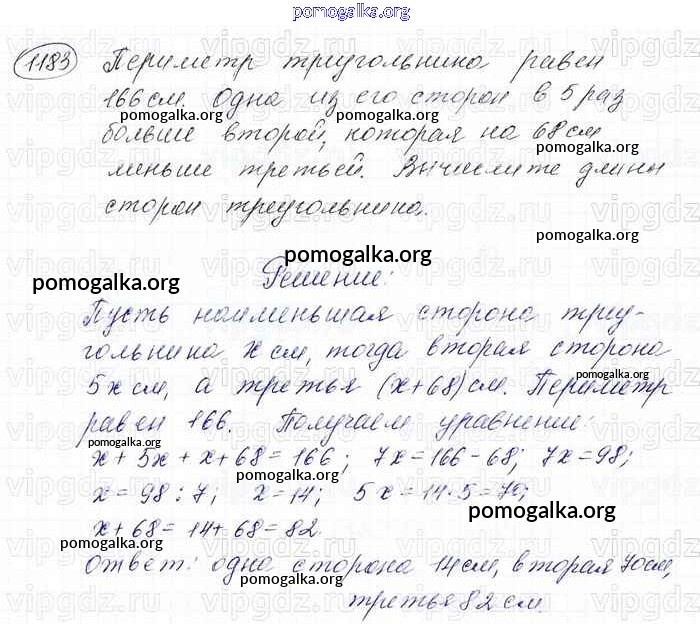 pomogalka.org
1183 Периметр треугольника равен
166 см. Одна из его сторон в 5 раз
pomogalka.org pomogalka.org
больше второй, которая на 68 см
pomogalka.org
меньше третьей. Вычислите длины
сторон треугольника.
pomogalka.org
pomogalka.org
Решение:
pomogalka.org
Пусть наименьшая сторона треу-
гольника x см, тогда вторая сторона
pomogalka.org
5x см, а третья (x+68) см. Периметр
равен 166. Получаем уравнение:
pomogalka.org
x + 5x + x + 68 = 166; 7x = 166 - 68; 7x = 98;
x = 98 : 7; x = 14; 5x = 14 · 5 = 70;
pomogalka.org
x + 68 = 14 + 68 = 82.
pomogalka.org
Ответ: одна сторона 14 см, вторая 70 см,
pomogalka.org
третья 82 см.